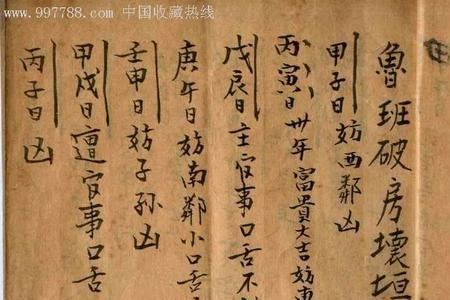 www.997788.com 中国收藏热线
魯班破房壞垣
甲子日妨西鄰凶
丙寅日卅年富貴大吉妨東
戊辰日主官事口舌不
庚午日妨南鄰小口舌
壬申日妨子孫凶
甲戌日遭官事口舌
丙子日凶